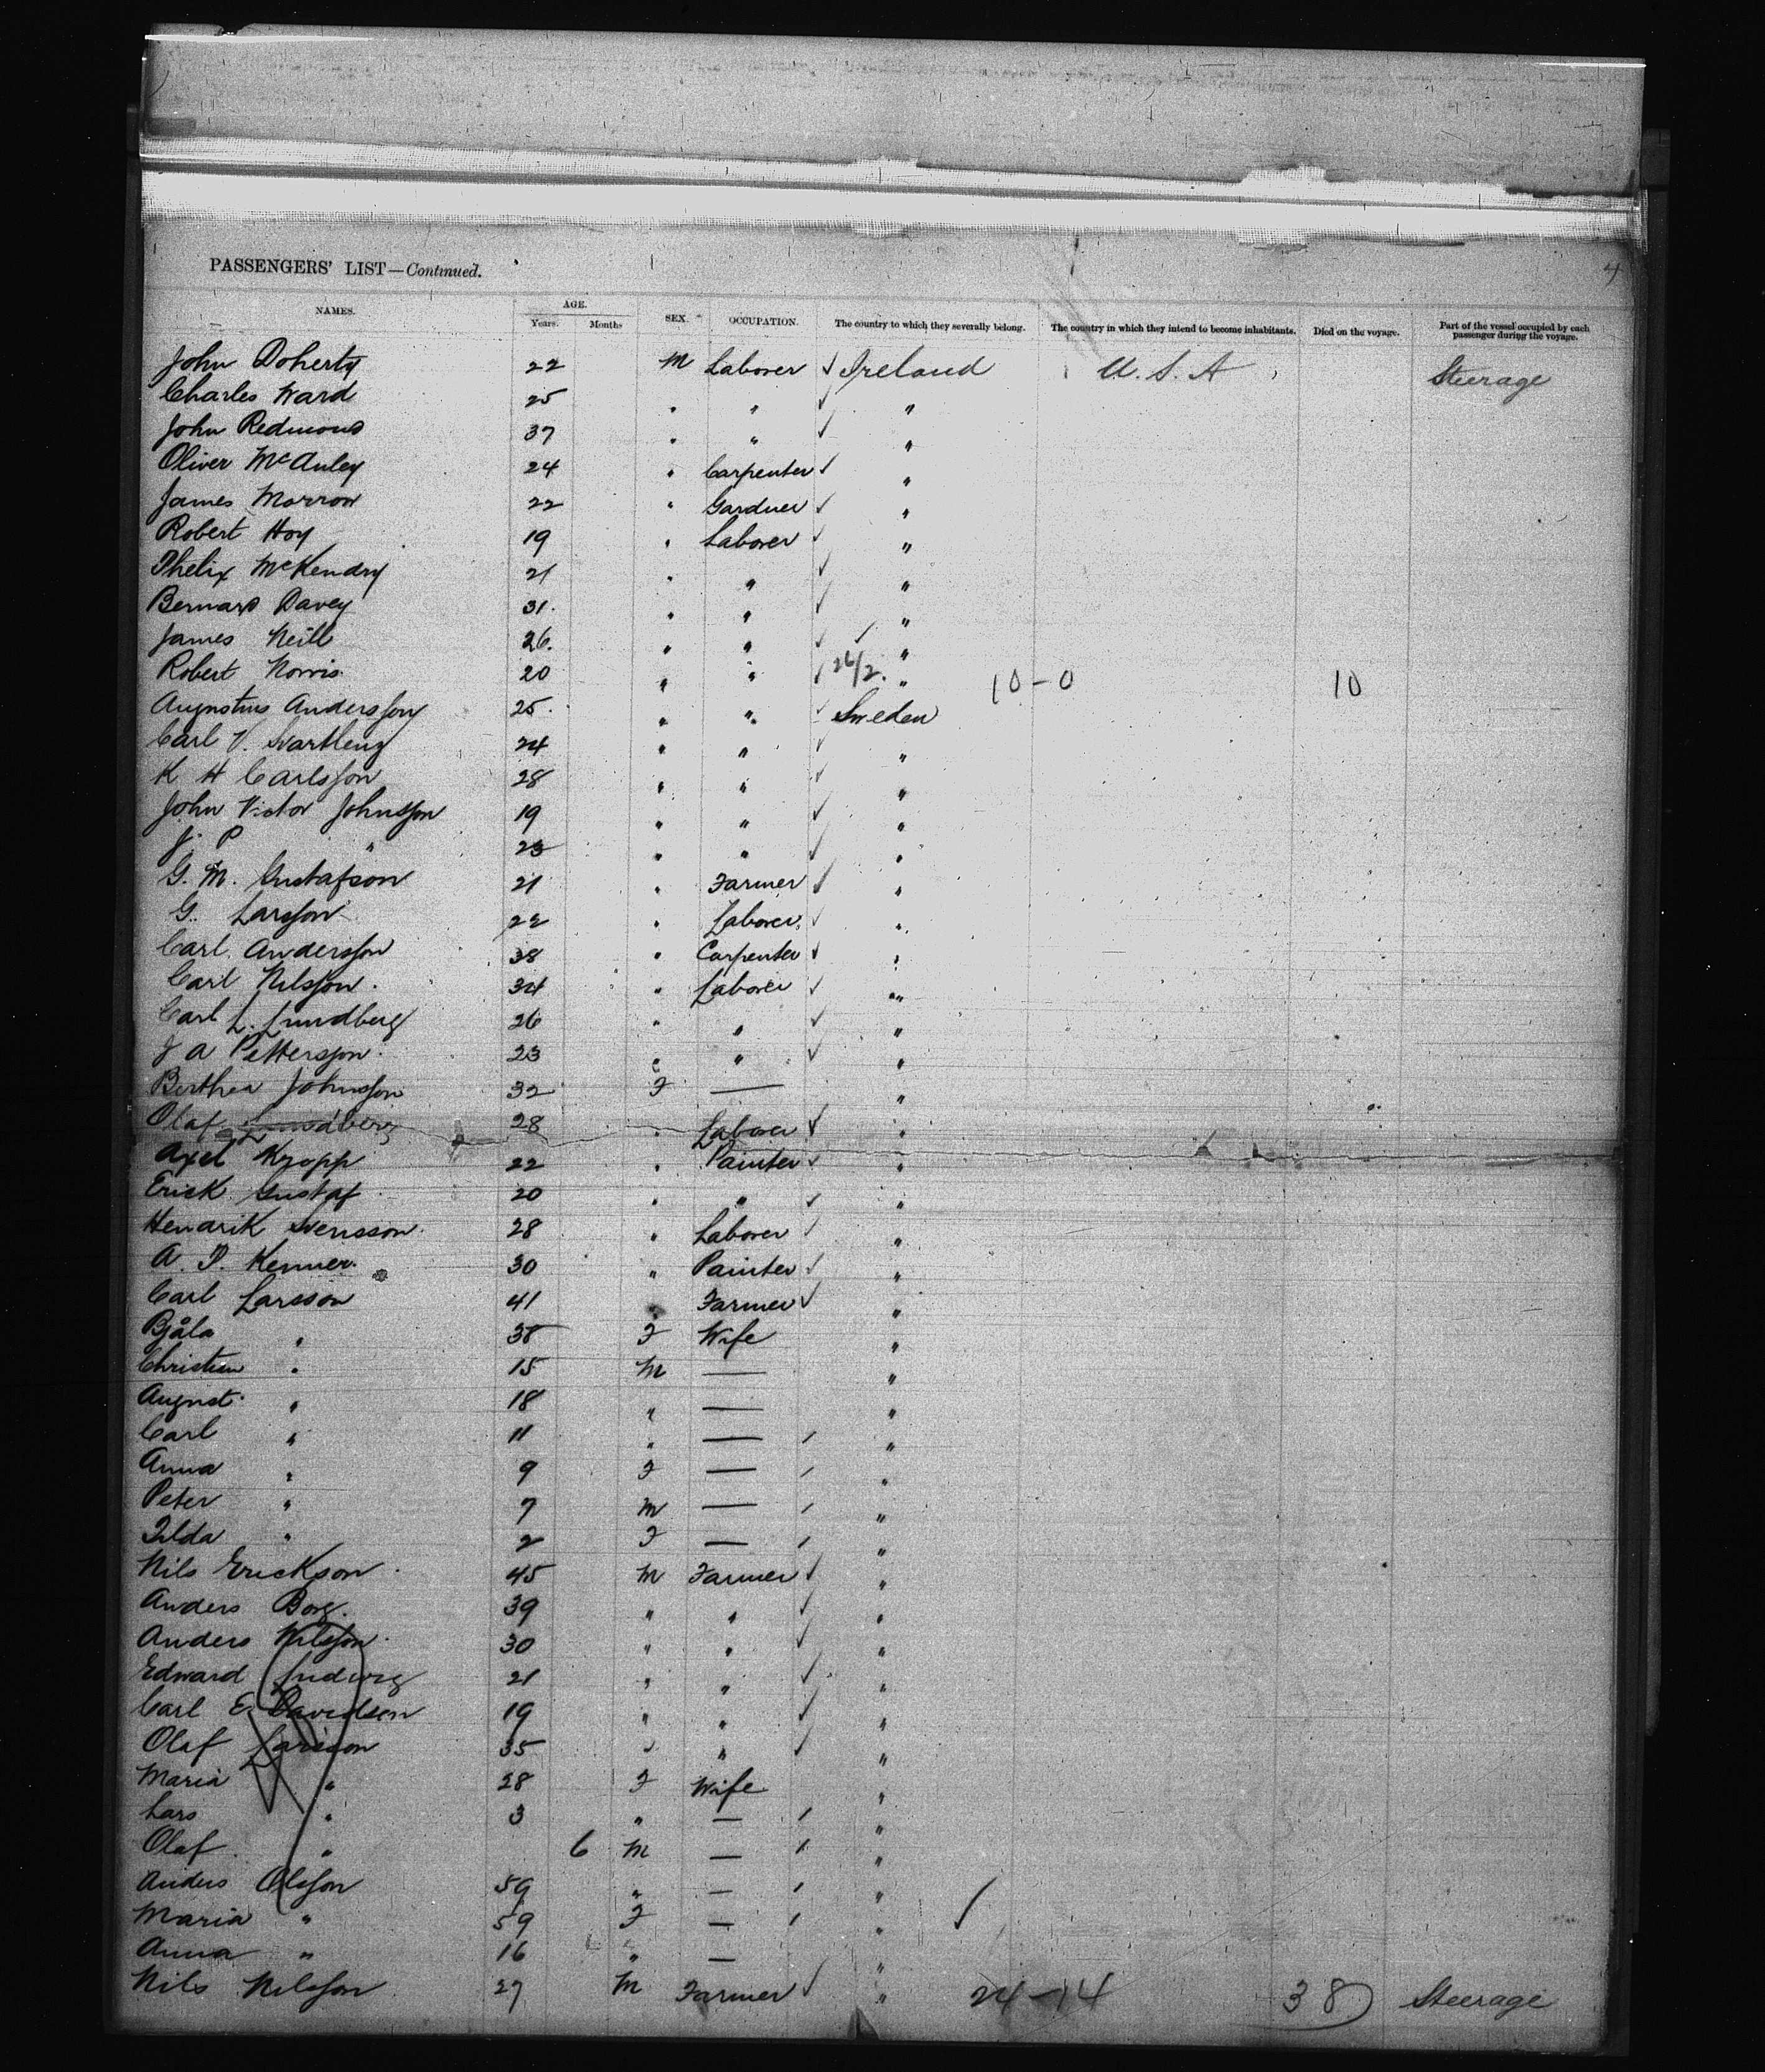 4
PASSENGERS' LIST—Continued.
NAMES. AGE. Years. Months SEX. OCCUPATION. The country to which they severally belong. The country in which they intend to become inhabitants. Died on the voyage. Part of the vessel occupied by each passenger during the voyage.
John Doherty 22 M Laborer ✓ Ireland U.S.A Steerage
Charles Ward 25 " " ✓ "
John Redmond 37 " " ✓ "
Oliver McAuley 24 " Carpenter ✓ "
James Morrow 22 " Gardner ✓ "
Robert Hoy 19 " Laborer ✓ "
Phelix McKendry 21 " " ✓ "
Bernard Davey 31. " " ✓ "
James Neill 26. " " ✓ ✓ "
Robert Norris 20 " " ✓ 26/2. " 10-0 10
Augustus Andersson 25. " " ✓ Sweden
Carl V. 24 " " ✓ "
K H Carlsson 28 " " ✓ "
John Victor Johnsson 19 " " ✓ "
J. P " 23 " " ✓ "
G. M. Gustafson 21 " Farmer ✓ "
G. Larsson 22 " Laborer ✓ "
Carl Andersson 38 " Carpenter ✓ "
Carl Nilsson 34 " Laborer ✓ "
Carl L. Lundberg 26 " " ✓ "
J A Pettersson 23 " " ✓ "
Berthea Johnsson 32 F — "
Olaf 28 " Laborer ✓ "
Axel Kropp 22 " Painter ✓ "
Erick Gustaf 20 " " ✓ "
Hendrik Svensson 28 " Laborer ✓ "
A. P. Kenner 30 " Painter ✓ "
Carl Larsson 41 " Farmer ✓ "
Bjåla " 38 F Wife "
Christian " 15 M — "
August " 18 " — "
Carl " 11 " — / "
Anna " 9 F — / "
Peter " 7 M — / "
Tilda " 2 F — / "
Nils Erickson 45 M Farmer ✓ "
Anders Borg. 39 " " ✓ "
Anders Nilsson 30 " " ✓ "
Edward Ludwig 21 " " ✓ "
Carl E. Davidson 19 " " ✓ "
Olaf Larsson 35 " " ✓ "
Maria " 28 F Wife "
Lars " 3 " — / "
Olaf " 6 M — / "
Anders Olsson 59 " — / "
Maria " 59 F — / " ✓
Anna " 16 " — "
Nils Nilsson 27 M Farmer ✓ " 24-14 38 Steerage